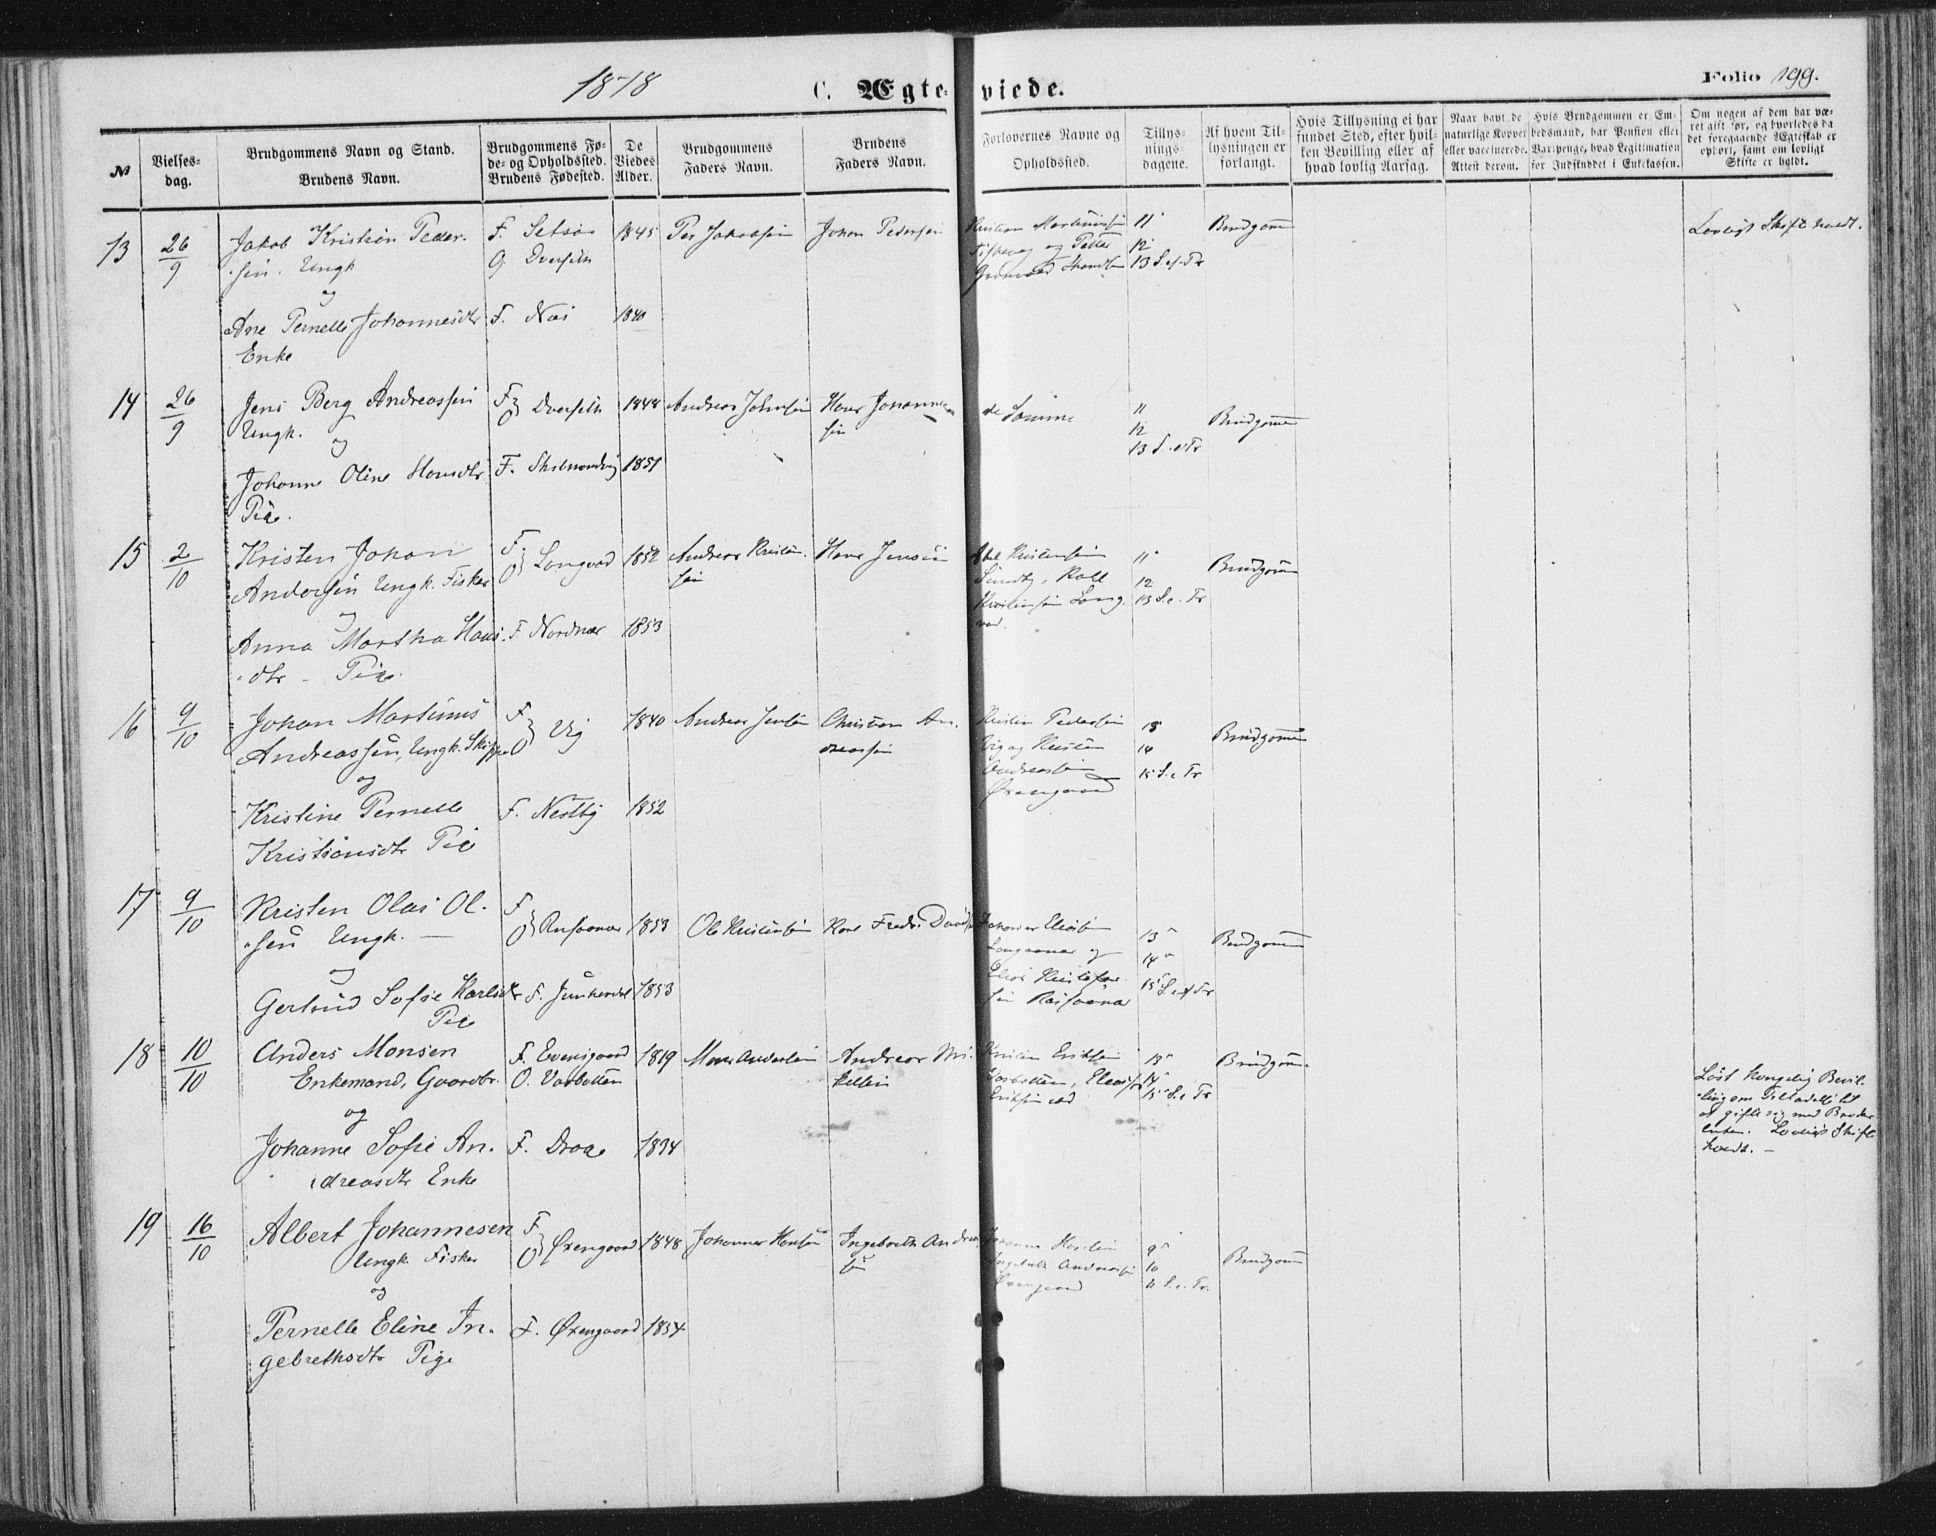 1878
C. Ægteviede.
Folio 199.
№
Vielses-
dag.
Brudgommens Navn og Stand.
Brudens Navn.
Brudgommens Fø-
de- og Opholdssted.
Brudens Fødested.
De
Viedes
Alder.
Brudgommens
Faders Navn.
Brudens
Faders Navn.
Forlovernes Navne og
Opholdssted.
Tillys-
nings-
dagene.
Af hvem Til-
lysningen er
forlangt.
Hvis Tillysning ei har
fundet Sted, efter hvil-
ken Bevilling eller af
hvad lovlig Aarsag.
Naar havt de
naturlige Kopper
eller vaccinerede.
Attest derom.
Hvis Brudgommen er Em-
bedsmand, har Pension eller
Vartpenge, hvad Legitimation
for Indskuddet i Enkekassen.
Om nogen af dem har væ-
ret gift før, og hvorledes da
det foregaaende Ægteskab er
ophørt, samt om lovligt
Skifte er holdt.
13 26/9 Jakob Kristian Peder- F. 1845 Per Jakobsen Johan Pedersen 11 Brudgom Lovligt Skifte
sen. Ungk O. Dverseth og 12
13 S. e. Tr
og
Ane Pernelle Johannesdtr F. Næs 1840
Enke
14 26/9 Jens Berg Andreassen F O Dverseth 1848 Andreas Johnsen Hans Johannes- de Samme 11 Brudgom
Ungk. sen 12
og 13 S. e. Tr
Johanne Oline Hansdtr F. 1851
Pige.
15 2/10 Kristen Johan F O Langvad 1852 Andreas Kristen- Hans Jensen 11 Brudgom
Andersen Ungk. Fisker sen 12
Kristensen Lang- 13 S. e. Tr
og vad.
Anna Martha Hans- F Nordnæs 1853
dtr - Pige.
16 9/10 Johan Martinus F O Vig 1840 Andreas Jensen Christian An- Kristen Pedersen 13 Brudgom
Andreassen, Ungk. Skipper dreassen Vig og Kristen 14
og Andreassen 15 S. e. Tr
Øxengaard
Kristine Pernelle F. Nestby 1852
Kristiansdtr Pige
17 9/10 Kristen Olai Ol- F O 1853 Ole Kristensen Karl Fredr. 13 Brudgom
sen Ungk. - og 14
og 15 S. e. Tr
Gertrud Sofie Karlsdtr F. Junkerdal 1853
Pige
18 10/10 Anders Monsen F. Evensgaard 1819 Mons Andersen Andreas Mi- Kristen Eriksen 13 Brudgom
Enkemand, Gaardbr. O. Vasbotten kelsen Vasbotten, 14
Eriksen 15 S. e. Tr
og
Johanne Sofie An- F. Drage 1834
dreasdtr Enke
Løst kongelig Bevil-
ling om Tilladelse til
at gifte sig med Broder-
enken. Lovligt Skifte
holdt. -
19 16/10 Albert Johannesen F O Øxengaard 1848 Johannes Hansen Ingebreth Andreas- Johannes Hansen 9 Brudgom
Ungk. Fisker sen Ingebreth Andreassen 10
og Øxengaard 11 S. e. Tr.
Pernelle Eline In- F. Øxengaard 1854
gebrethsdtr Pige